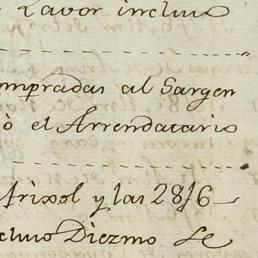 Lavor incluso
mpradas al Sargen
ò el Arrendatario
frixol y las 28/6
cluso Diezmo. Se